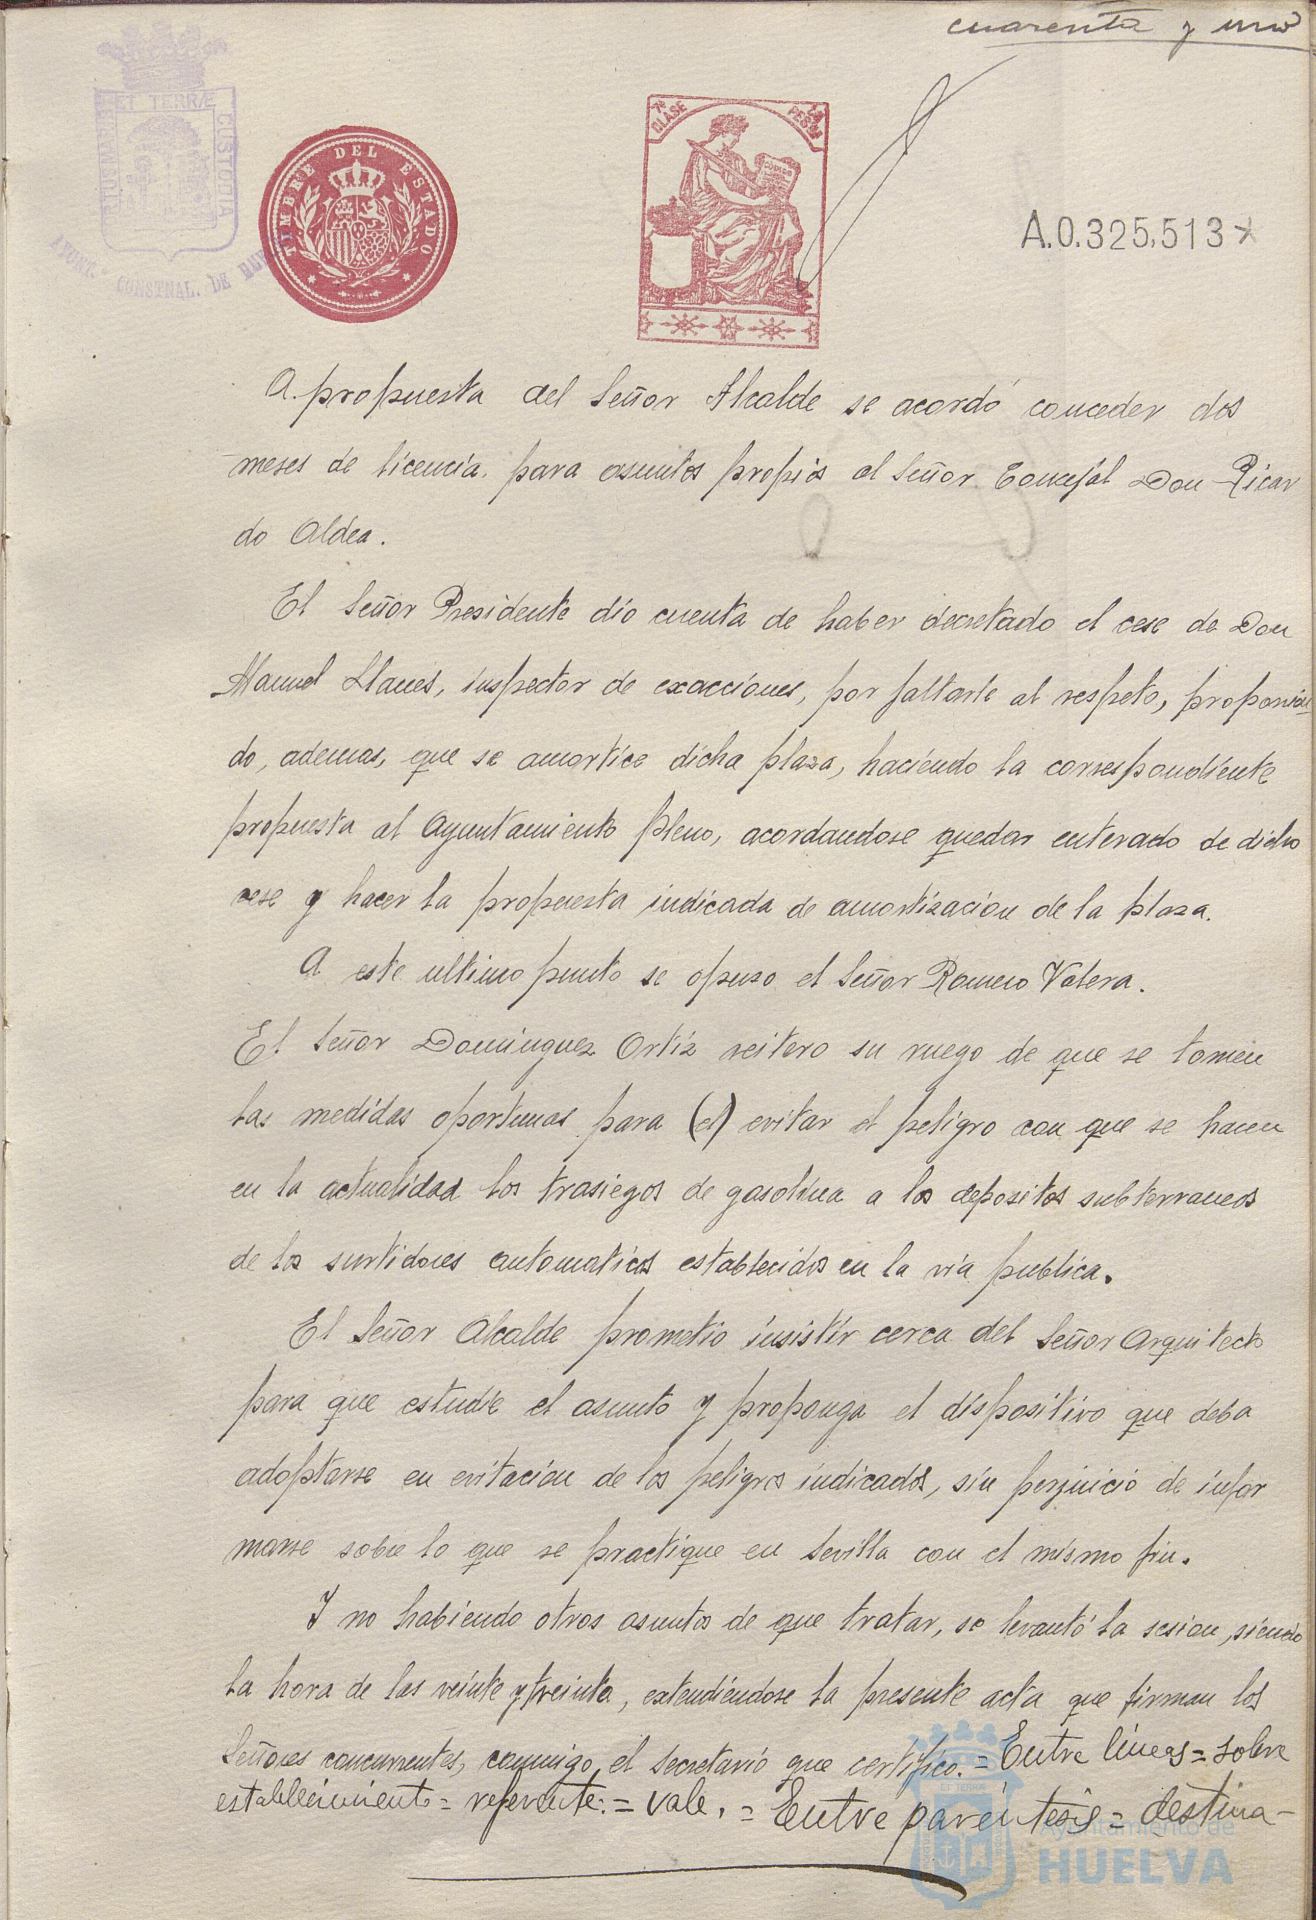 cuarenta y uno
ET TERRÆ CUSTODIA
AYUNT.º CONSTNAL. DE
TIMBRE DEL ESTADO
7ª CLASE
CODIGO
A.0.325,513
A propuesta del Señor Alcalde se acordó conceder dos
meses de licencia para asuntos propios al Señor Concejal Don Ricar
do Aldea.
El Señor Presidente dio cuenta de haber decretado el cese de Don
Manuel Llanes, inspector de exacciones, por faltarle al respeto, proponién
do, ademas, que se amortice dicha plaza, haciendo la correspondiente
propuesta al Ayuntamiento Pleno, acordandose quedar enterado de dicho
cese y hacer la propuesta indicada de amortizacion de la plaza.
A este ultimo punto se opuso el Señor Romero Valera.
El Señor Dominguez Ortiz reitero su ruego de que se tomen
las medidas oportunas para (el) evitar el peligro con que se hacen
en la actualidad los trasiegos de gasolina a los depositos subterraneos
de los surtidores automaticos establecidos en la via publica.
El Señor Alcalde prometio insistir cerca del Señor Arquitecto
para que estudie el asunto y proponga el dispositivo que deba
adoptarse en evitacion de los peligros indicados, sin perjuicio de infor
marse sobre lo que se practique en Sevilla con el mismo fin.
Y no habiendo otros asuntos de que tratar, se levantó la sesion, siendo
la hora de las veinte y treinta, extendiendose la presente acta que firman los
Señores concurrentes, conmigo, el Secretario que certifico. = Entre lineas = sobre
establecimiento = referente: = vale. = Entre paréntesis = destina-
Ayuntamiento de
HUELVA